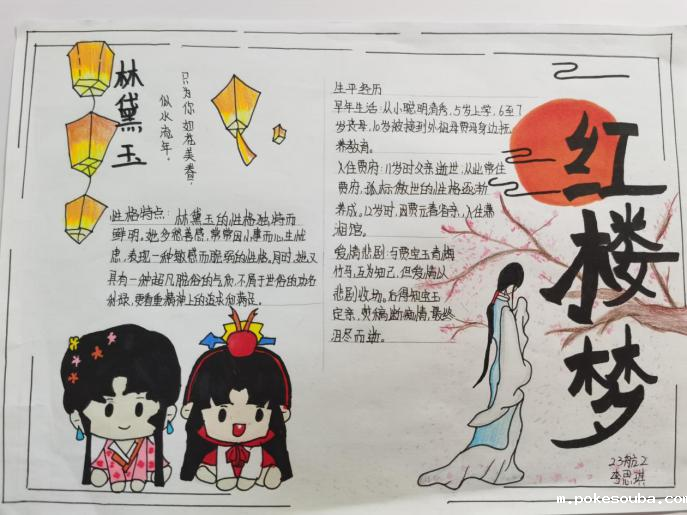 林黛玉
只为你如花美眷,
似水流年。
性格特点: 林黛玉的性格独特而
鲜明。她多愁善感,常常因小事而心生忧
虑,表现一种敏感而脆弱的性格。同时,她又
具有一种超凡脱俗的气质,不屑于世俗的功名
利禄,更看重精神上的追求和满足。
生平经历
早年生活:从小聪明清秀,5岁上学,6至7
岁丧母,10岁被接到外祖母贾母身边抚
养教育。
入住贾府:11岁时父亲逝世,从此常住
贾府,孤标傲世的性格逐渐
养成。12岁时,因贾元春省亲,入住潇
湘馆。
爱情悲剧:与贾宝玉青梅
竹马,互为知己,但爱情以
悲剧收场。后得知宝玉
定亲,焚稿断痴情,最终
泪尽而逝。
红楼梦
23航2
李思琪
m.pokesouba.com